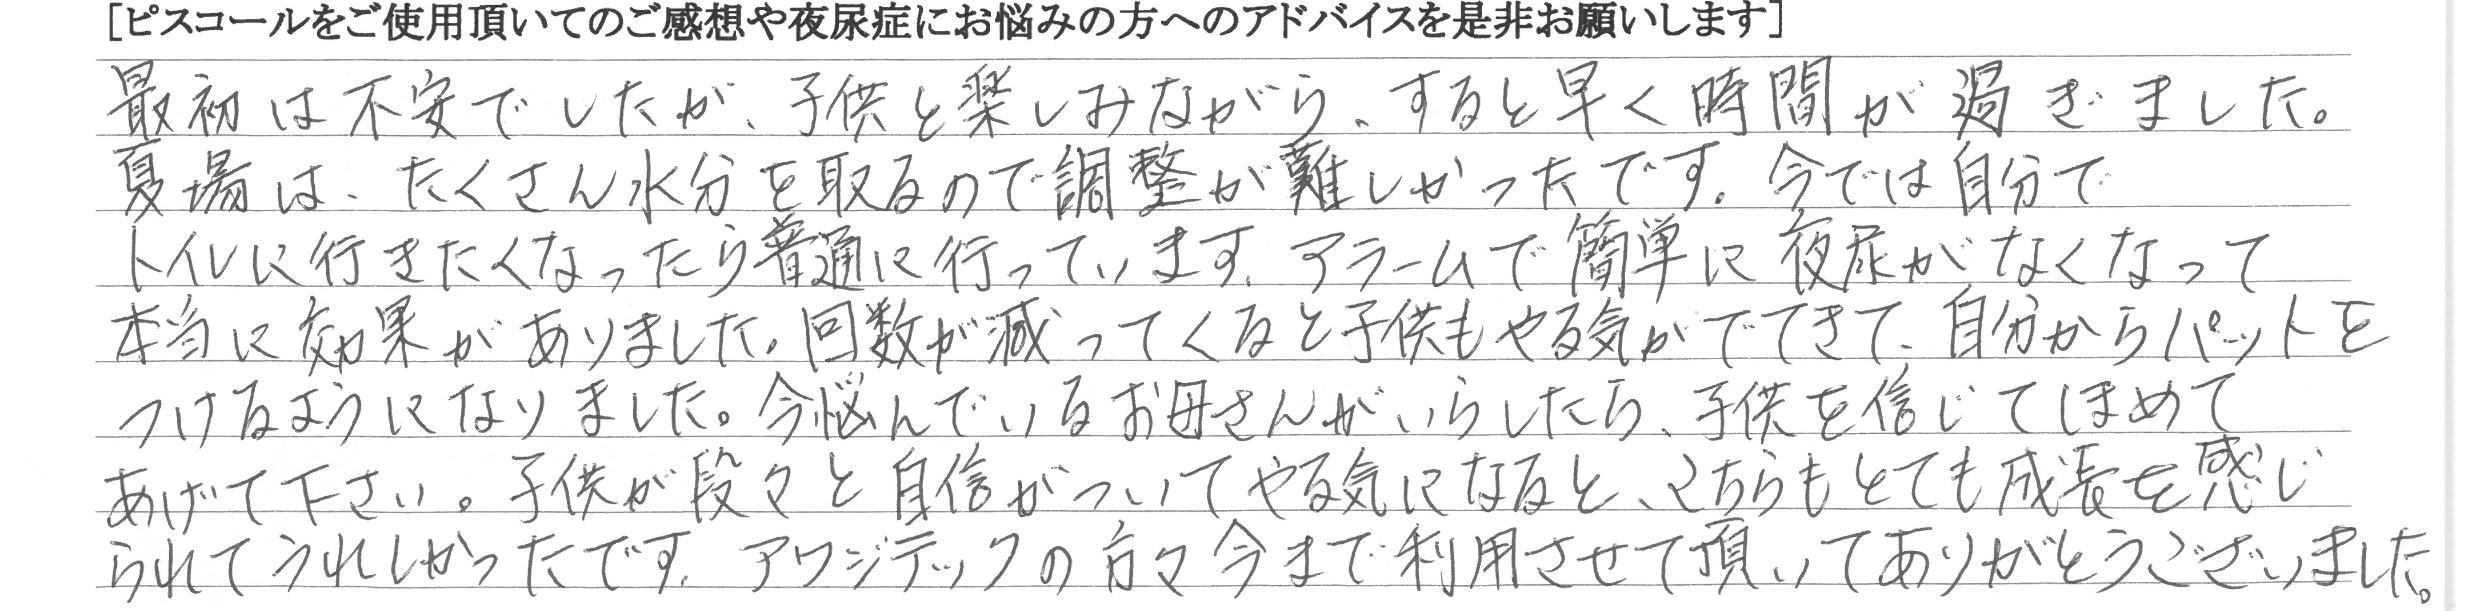 [ピスコールをご使用頂いてのご感想や夜尿症にお悩みの方へのアドバイスを是非お願いします]
最初は不安でしたが、子供と楽しみながら、すると早く時間が過ぎました。
夏場は、たくさん水分を取るので調整が難しかったです。今では自分で
トイレに行きたくなったら普通に行っています。アラームで簡単に夜尿がなくなって
本当に効果がありました。回数が減ってくると子供もやる気がでてきて、自分からパットを
つけるようになりました。今悩んでいるお母さんがいらしたら、子供を信じてほめて
あげて下さい。子供が段々と自信がついてやる気になると、こちらもとても成長を感じ
られてうれしかったです。アワジテックの方々今まで利用させて頂いてありがとうございました。